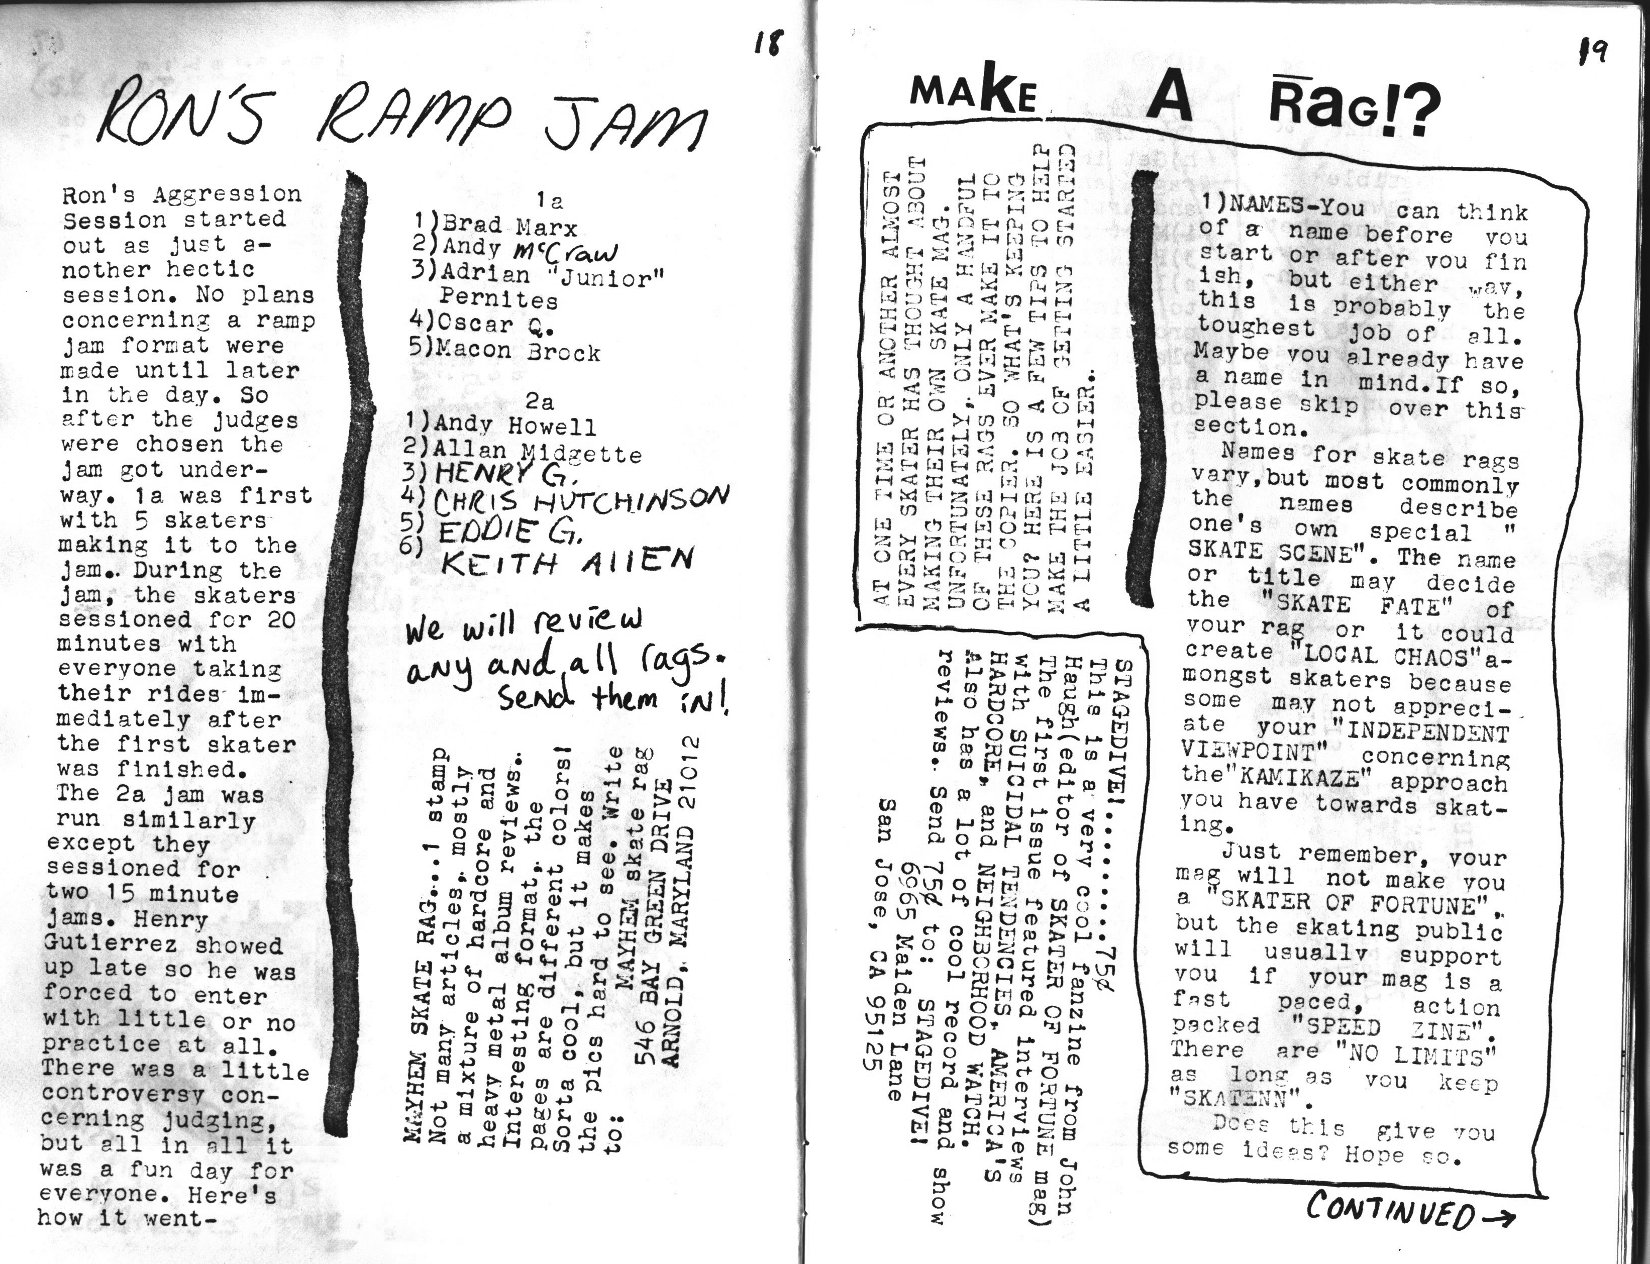 18
RON'S RAMP JAM
Ron's Aggression
Session started
out as just a-
nother hectic
session. No plans
concerning a ramp
jam format were
made until later
in the day. So
after the judges
were chosen the
jam got under-
way. 1a was first
with 5 skaters
making it to the
jam.. During the
jam, the skaters
sessioned for 20
minutes with
everyone taking
their rides im-
mediately after
the first skater
was finished.
The 2a jam was
run similarly
except they
sessioned for
two 15 minute
jams. Henry
Gutierrez showed
up late so he was
forced to enter
with little or no
practice at all.
There was a little
controversy con-
cerning judging,
but all in all it
was a fun day for
everyone. Here's
how it went-
1a
1)Brad Marx
2)Andy McCraw
3)Adrian "Junior"
Pernites
4)Oscar Q.
5)Macon Brock
2a
1)Andy Howell
2)Allan Midgette
3)HENRY G.
4)CHRIS HUTCHINSON
5) EDDIE G.
6) KEITH AllEN
We will review
any and all rags.
Send them iN!
MAYHEM SKATE RAG...1 stamp
Not many articles, mostly
a mixture of hardcore and
heavy metal album reviews..
Interesting format, the
pages are different colors!
Sorta cool, but it makes
the pics hard to see. Write
to: MAYHEM skate rag
546 BAY GREEN DRIVE
ARNOLD, MARYLAND 21012
19
MAkE A RaG!?
AT ONE TIME OR ANOTHER ALMOST
EVERY SKATER HAS THOUGHT ABOUT
MAKING THEIR OWN SKATE MAG.
UNFORTUNATELY, ONLY A HANDFUL
OF THESE RAGS EVER MAKE IT TO
THE COPIER. SO WHAT'S KEEPING
YOU? HERE IS A FEW TIPS TO HELP
MAKE THE JOB OF GETTING STARTED
A LITTLE EASIER..
STAGEDIVE!...........75¢
This is a very cool fanzine from John
Haugh(editor of SKATER OF FORTUNE mag)
The first issue featured interviews
with SUICIDAL TENDENCIES, AMERICA'S
HARDCORE, and NEIGHBORHOOD WATCH.
Also has a lot of cool record and show
reviews. Send 75¢ to: STAGEDIVE!
6965 Maiden Lane
San Jose, CA 95125
1)NAMES-You can think
of a name before you
start or after you fin
ish, but either way,
this is probably the
toughest job of all.
Maybe you already have
a name in mind.If so,
please skip over this
section.
Names for skate rags
vary,but most commonly
the names describe
one's own special "
SKATE SCENE". The name
or title may decide
the "SKATE FATE" of
your rag or it could
create "LOCAL CHAOS"a-
mongst skaters because
some may not appreci-
ate your "INDEPENDENT
VIEWPOINT" concerning
the"KAMIKAZE" approach
you have towards skat-
ing.
Just remember, your
mag will not make you
a "SKATER OF FORTUNE",
but the skating public
will usually support
you if your mag is a
fast paced, action
packed "SPEED ZINE".
There are "NO LIMITS"
as long as you keep
"SKATENN".
Does this give you
some ideas? Hope so.
CONTINUED→